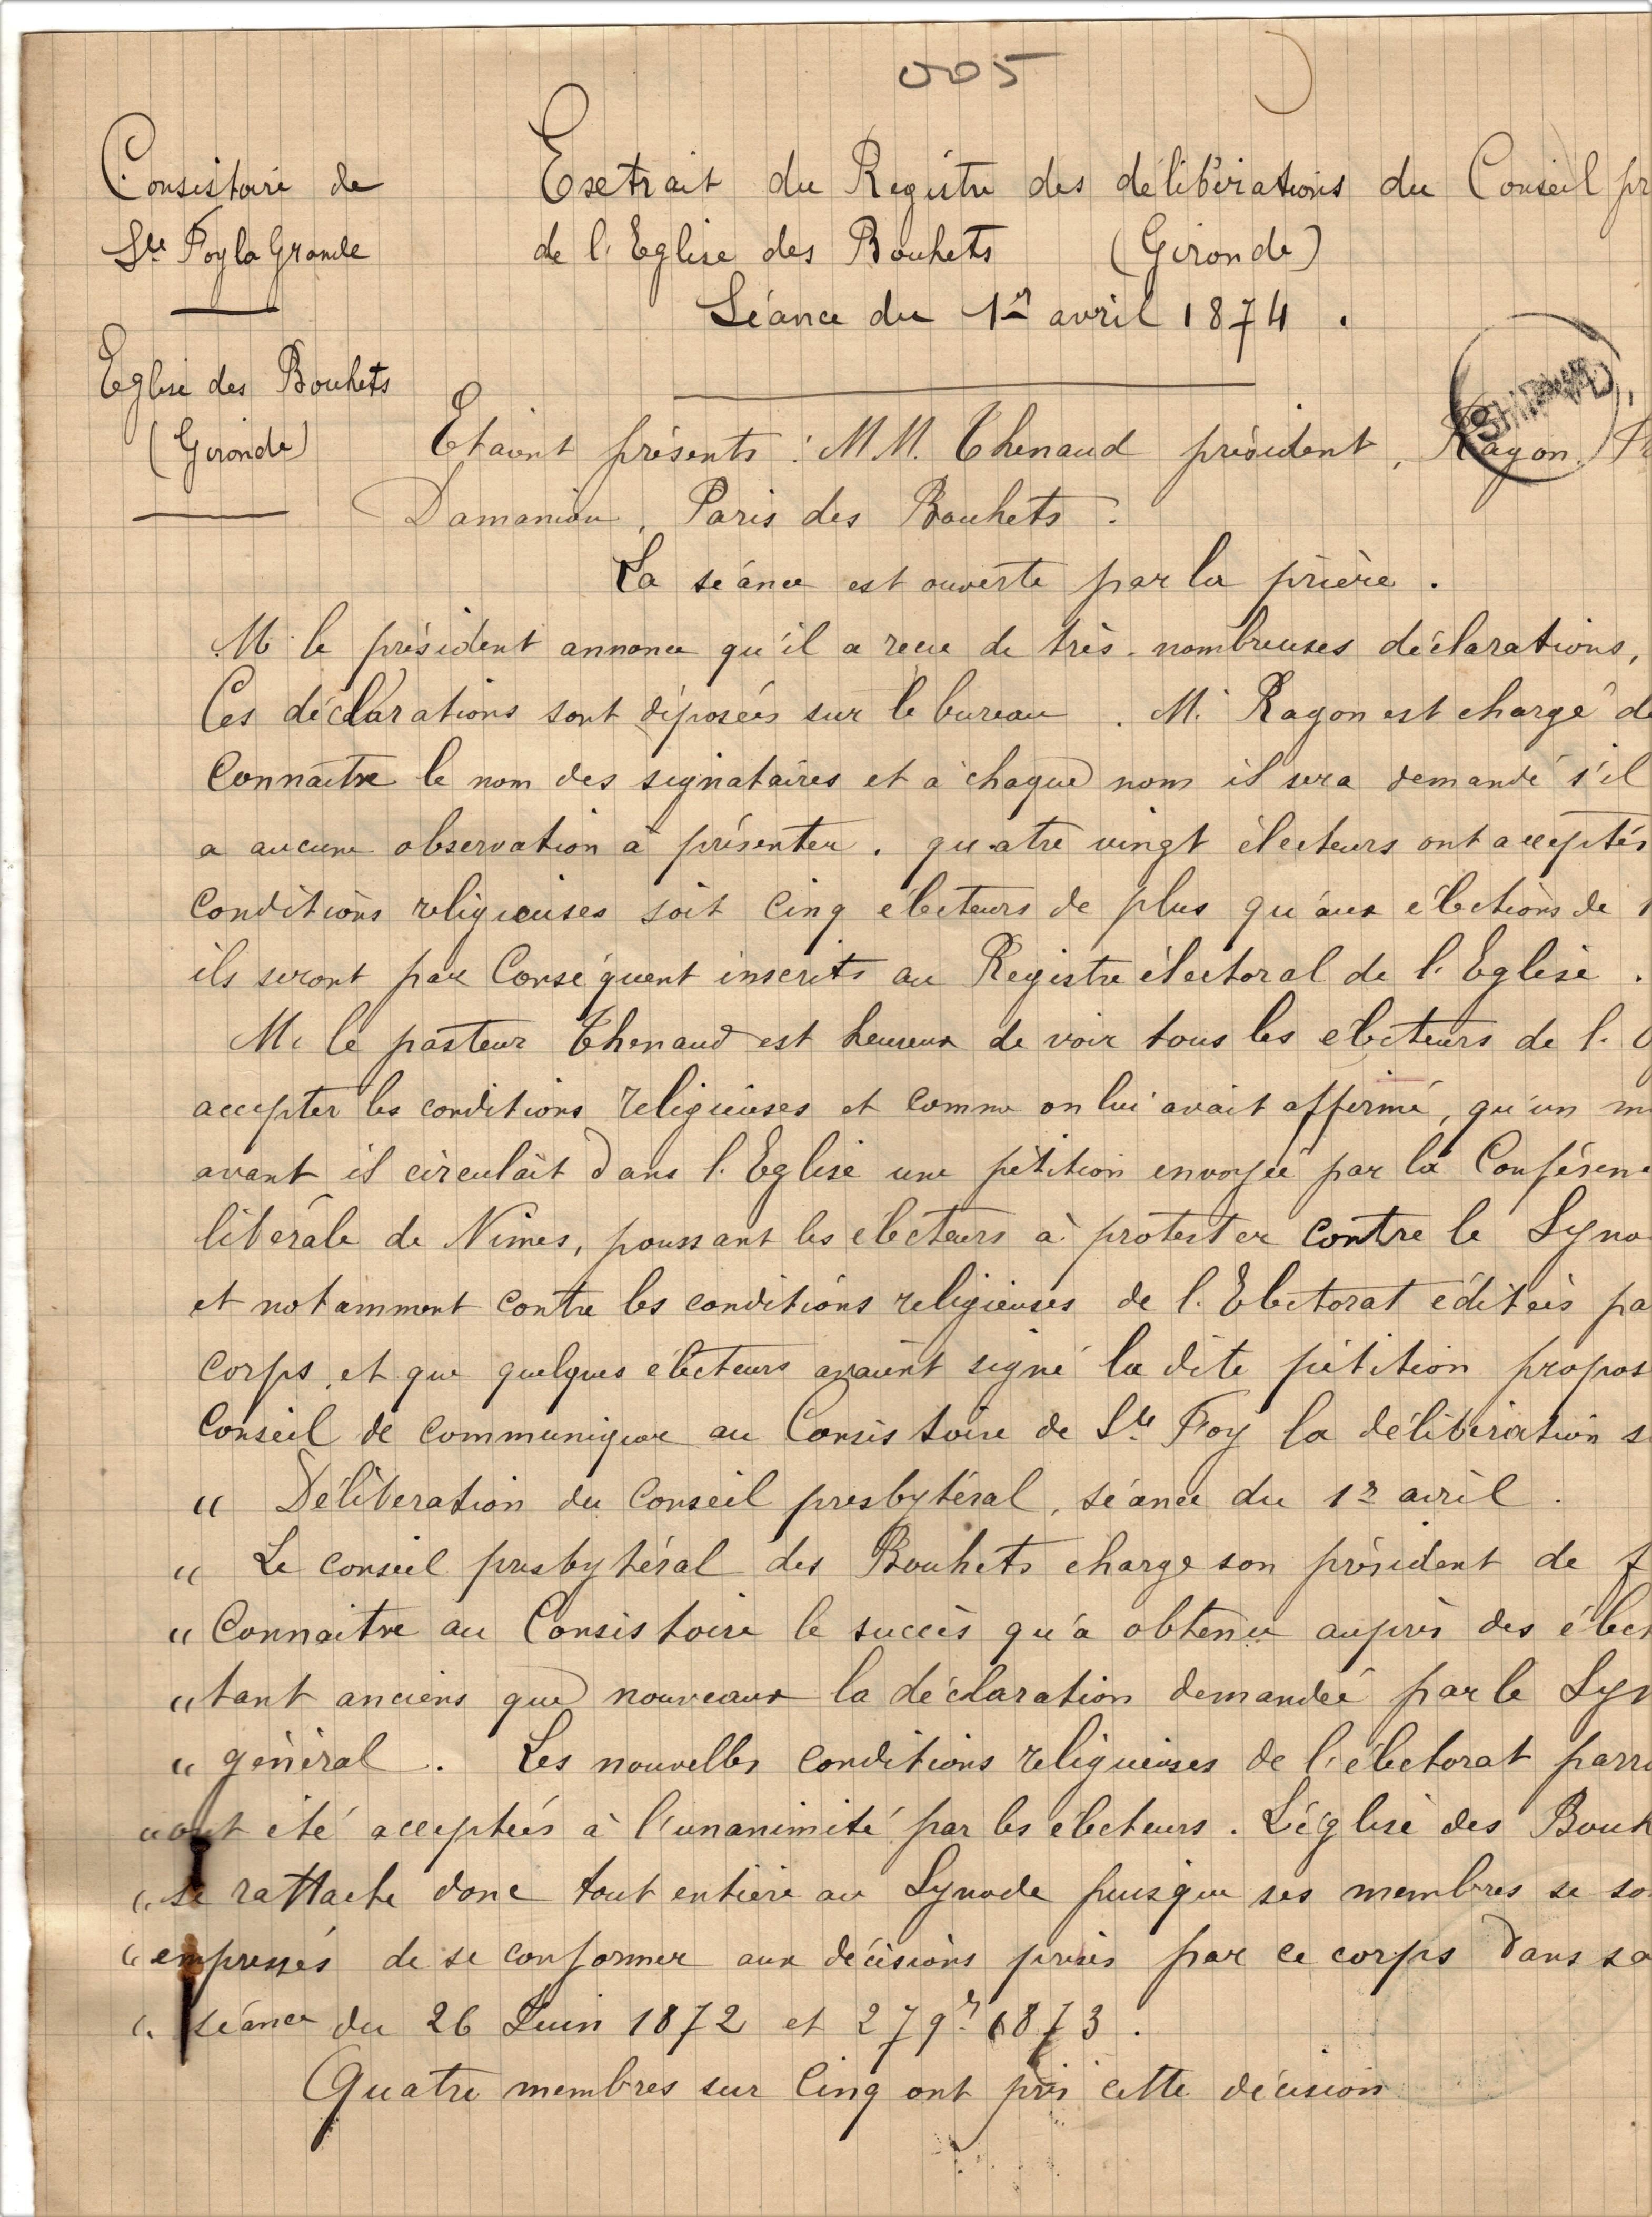 005
Consistoire de
Ste Foy la Grande
Eglise des Bouhets
(Gironde)
Extrait du Registre des délibérations du Conseil pr
de l'Eglise des Bouhets (Gironde)
Séance du 1er avril 1874.
Etaient présents : M.M. Thenaud président, Ragon
Damaniou, Paris des Bouhets.
La séance est ouverte par la prière.
M. le président annonce qu'il a reçu de très-nombreuses déclarations,
Ces déclarations sont déposées sur le bureau. M. Ragon est chargé de
Connaître le nom des signataires et à chaque nom il sera demandé s'il
a aucune observation à présenter. quatre vingt électeurs ont acceptés
Conditions religieuses soit Cinq électeurs de plus qu'aux élections de 1
ils seront par Conséquent inscrits au Registre électoral de l'Eglise.
M. le pasteur Thenaud est heureux de voir tous les électeurs de l'
accepter les conditions religieuses et comme on lui avait affirmé, qu'un m
avant il circulait dans l'Eglise une pétition envoyée par la Conférenc
libérale de Nimes, poussant les électeurs à protester contre le Syno
et notamment contre les conditions religieuses de l'Electorat éditées pa
corps, et que quelques électeurs avaient signé la dite pétition propos
Conseil de communiquer au Consistoire de Ste Foy la délibération s
" Délibération du Conseil presbytéral, séance du 1er avril.
" Le conseil presbytéral des Bouhets charge son président de f
" Connaitre au Consistoire le succès qu'a obtenu auprès des élect
" tant anciens que nouveaux la déclaration demandée par le Syn
" général. Les nouvelles conditions religieuses de l'électorat parro
" ont été acceptées à l'unanimité par les électeurs. L'église des Bouh
" se rattache donc tout entière au Synode puisque ses membres se so
" empressés de se conformer aux décisions prises par ce corps dans sa
" séance du 26 Juin 1872 et 27 9r 1873.
Quatre membres sur Cinq ont pris cette décision